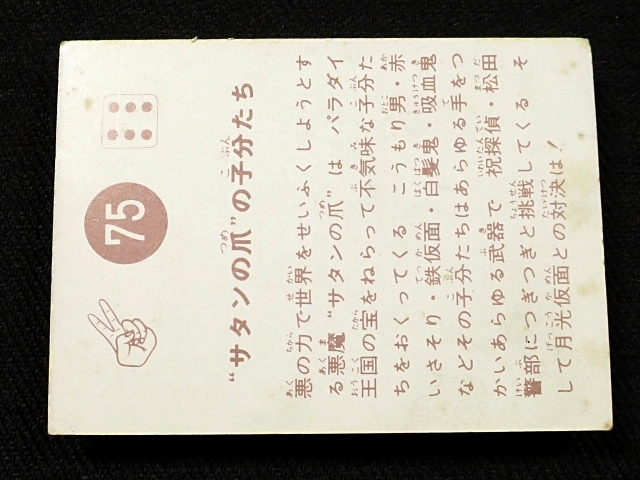 75
“サタンの爪”の子分たち
悪の力で世界をせいふくしようとす
る悪魔“サタンの爪”は パラダイ
王国の宝をねらって不気味な子分た
ちをおくってくる こうもり男・赤
いさそり・鉄仮面・白髪鬼・吸血鬼
などその子分たちはあらゆる手をつ
かいあらゆる武器で 祝探偵・松田
警部につぎつぎと挑戦してくる そ
して月光仮面との対決は！